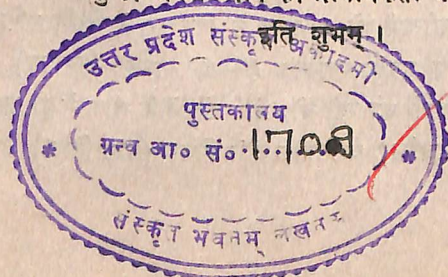 इति शुभम् ।
उत्तर प्रदेश संस्कृत अकादमी
पुस्तकालय
ग्रन्थ आ० सं० 1708
संस्कृत भवनम् लखनऊ